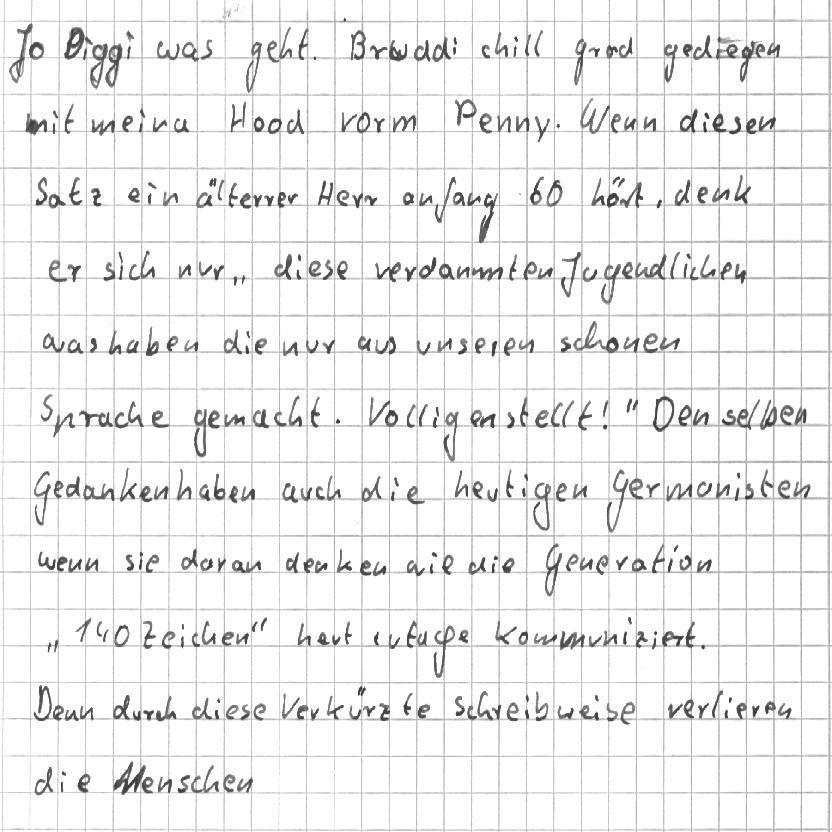 Jo Diggi was geht. Bruddi chill grad gediegen
mit meina Hood vorm Penny. Wenn diesen
Satz ein älterrer Herr anfang 60 hört, denk
er sich nur „ diese verdammten Jugendlichen
was haben die nur aus unseren schonen
Sprache gemacht. Vollig enstellt!" Den selben
Gedanken haben auch die heutigen Germanisten
wenn sie daran denken wie die Generation
„ 140 Zeichen" heut zutage kommuniziert.
Denn durch diese Verkürzte schreibweise verlieren
die Menschen